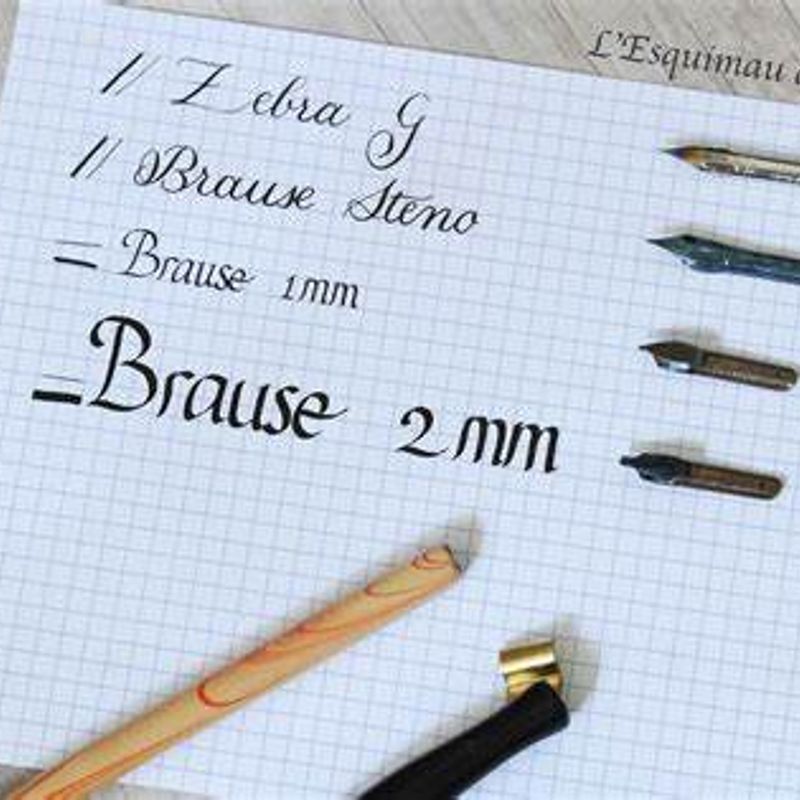 L'Esquimau
// Zebra G
// Brause Steno
= Brause 1mm
= Brause 2mm